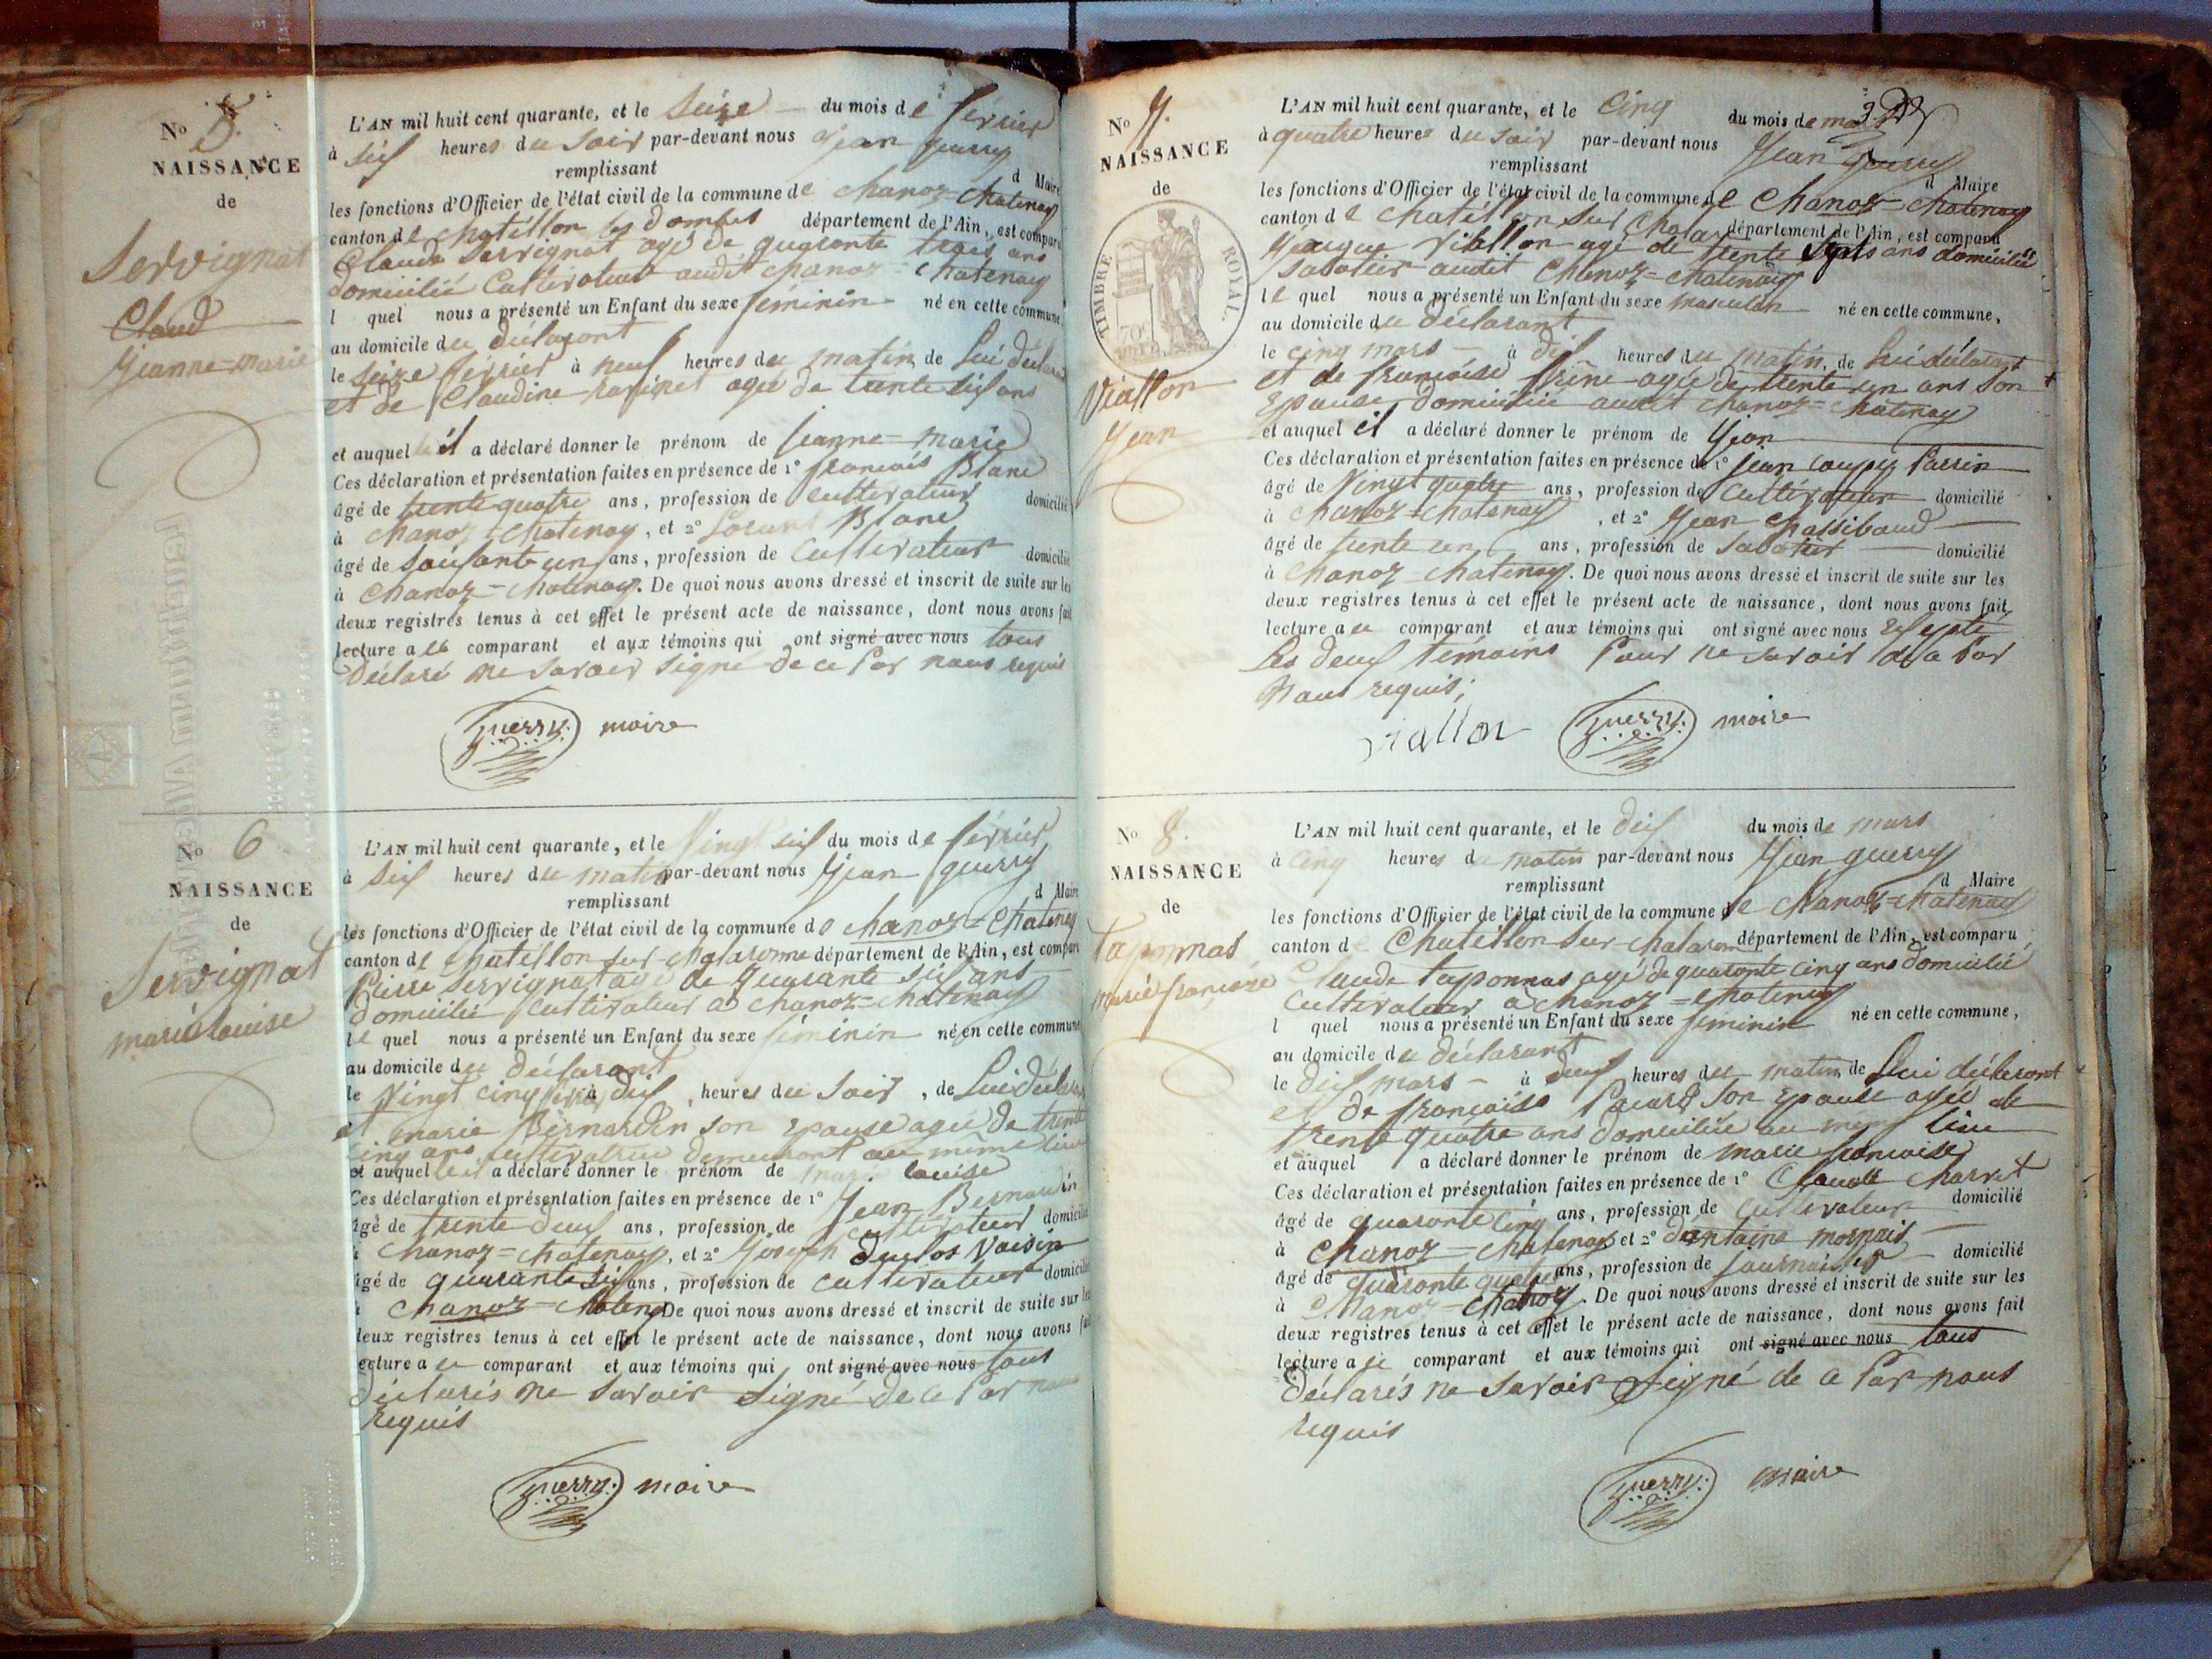 No 5.
NAISSANCE
de
Servignat
Claud
Jeanne=marie
L'AN mil huit cent quarante, et le Seize du mois de février
à six heures du Soir par-devant nous jean guerry
remplissant d Maire
les fonctions d'Officier de l'état civil de la commune de chanoz=chatenay
canton de chatillon les dombes département de l'Ain, est comparu
Claude Servignat agé de quaronte trois ans
domicilié Cultivateur audit chanoz=chatenay
l quel nous a présenté un Enfant du sexe féminin né en cette commune,
au domicile du déclarant
le seize février à neuf heures du matin de Lui déclara
et de Claudine ravinet agée de trente six ans
et auquel il a déclaré donner le prénom de jeanne=marie
Ces déclaration et présentation faites en présence de 1° francois Blanc
âgé de trente quatre ans, profession de cultivateur domicilié
à chanoz=chatenay, et 2° Blanc
âgé de soixante un ans, profession de Cultivateur domicilié
à chanoz=chatenay. De quoi nous avons dressé et inscrit de suite sur les
deux registres tenus à cet effet le présent acte de naissance, dont nous avons fait
lecture a ce comparant et aux témoins qui ont signé avec nous tous
Déclaré ne Savoir Signé de ce Par nous requis
Guerry maire
No 6
NAISSANCE
de
Servignat
marie louise
L'AN mil huit cent quarante, et le Vingt six du mois de février
à six heures du matin par-devant nous Jean guerry
remplissant d Maire
les fonctions d'Officier de l'état civil de la commune de chanoz=chatenay
canton de chatillon sur chalaronne département de l'Ain, est comparu
Pierre Servignat agé de quarante six ans
domicilié cultivateur a chanoz=chatenay
le quel nous a présenté un Enfant du sexe féminin né en cette commune
au domicile du déclarant
le Vingt cinq à dix heures du Soir, de Lui déclara
et marie Bernardin son Epouse agée de trente
cinq ans cultivatrice demeurant au même lieu
et auquel il a déclaré donner le prénom de marie louise
Ces déclaration et présentation faites en présence de 1° Jean Bernardin
âgé de trente deux ans, profession de cultivateur domicilié
à chanoz=chatenay, et 2° Joseph duclos Voisin
âgé de quarante six ans, profession de cultivateur domicilié
à chanoz=chatenay De quoi nous avons dressé et inscrit de suite sur les
deux registres tenus à cet effet le présent acte de naissance, dont nous avons fait
lecture a ce comparant et aux témoins qui ont signé avec nous tous
déclarés ne Savoir signé de ce Par nous
requis
Guerry maire
No 7.
NAISSANCE
de
TIMBRE ROYAL.
70c
Viallon
Jean
L'AN mil huit cent quarante, et le Cinq du mois de mars
à quatre heures du soir par-devant nous Jean Guerry
remplissant d Maire
les fonctions d'Officier de l'état civil de la commune de Chanoz=chatenay
canton de chatillon sur Chalar département de l'Ain, est comparu
Viallon agé de trente Sept ans domicilié
Sabotier audit Chanoz=chatenay
le quel nous a présenté un Enfant du sexe masculin né en cette commune,
au domicile du déclarant
le cinq mars à dix heures du matin, de Lui déclarant
et de francoise frène agée de trente un ans Son
Epouse domiciliée audit chanoz=chatenay
et auquel il a déclaré donner le prénom de Jean
Ces déclaration et présentation faites en présence de 1° jean
âgé de Vingt quatre ans, profession de Cultivateur domicilié
à chanoz=chatenay, et 2° Jean
âgé de trente un ans, profession de Sabotier domicilié
à Chanoz=chatenay. De quoi nous avons dressé et inscrit de suite sur les
deux registres tenus à cet effet le présent acte de naissance, dont nous avons fait
lecture a ce comparant et aux témoins qui ont signé avec nous Excepté
Les deux témoins Pour ne savoir de a Par
Nous requis;
viallon Guerry maire
No 8.
NAISSANCE
de
Taponnas
marie françoise
L'AN mil huit cent quarante, et le dix du mois de mars
à cinq heures du matin par-devant nous Jean guerry
remplissant d Maire
les fonctions d'Officier de l'état civil de la commune de Chanoz=chatenay
canton de Chatillon sur chalaronne département de l'Ain, est comparu
Claude taponnas agé de quaronte cinq ans domicilié
Cultivateur a chanoz=chatenay
l quel nous a présenté un Enfant du sexe féminin né en cette commune,
au domicile du déclarant
le dix mars à heures du matin de Lui déclarant
et de francoise Son Epouse agée de
trente quatre ans domiciliée au même lieu
et auquel a déclaré donner le prénom de marie francoise
Ces déclaration et présentation faites en présence de 1° Claude Charvet
âgé de quaronte cinq ans, profession de Cultivateur domicilié
à chanoz=chatenay et 2°
âgé de quaronte quatre ans, profession de journalier domicilié
à Chanoz=chatenay. De quoi nous avons dressé et inscrit de suite sur les
deux registres tenus à cet effet le présent acte de naissance, dont nous avons fait
lecture a ce comparant et aux témoins qui ont signé avec nous tous
Déclarés ne Savoir Signé de ce Par nous
requis
Guerry maire